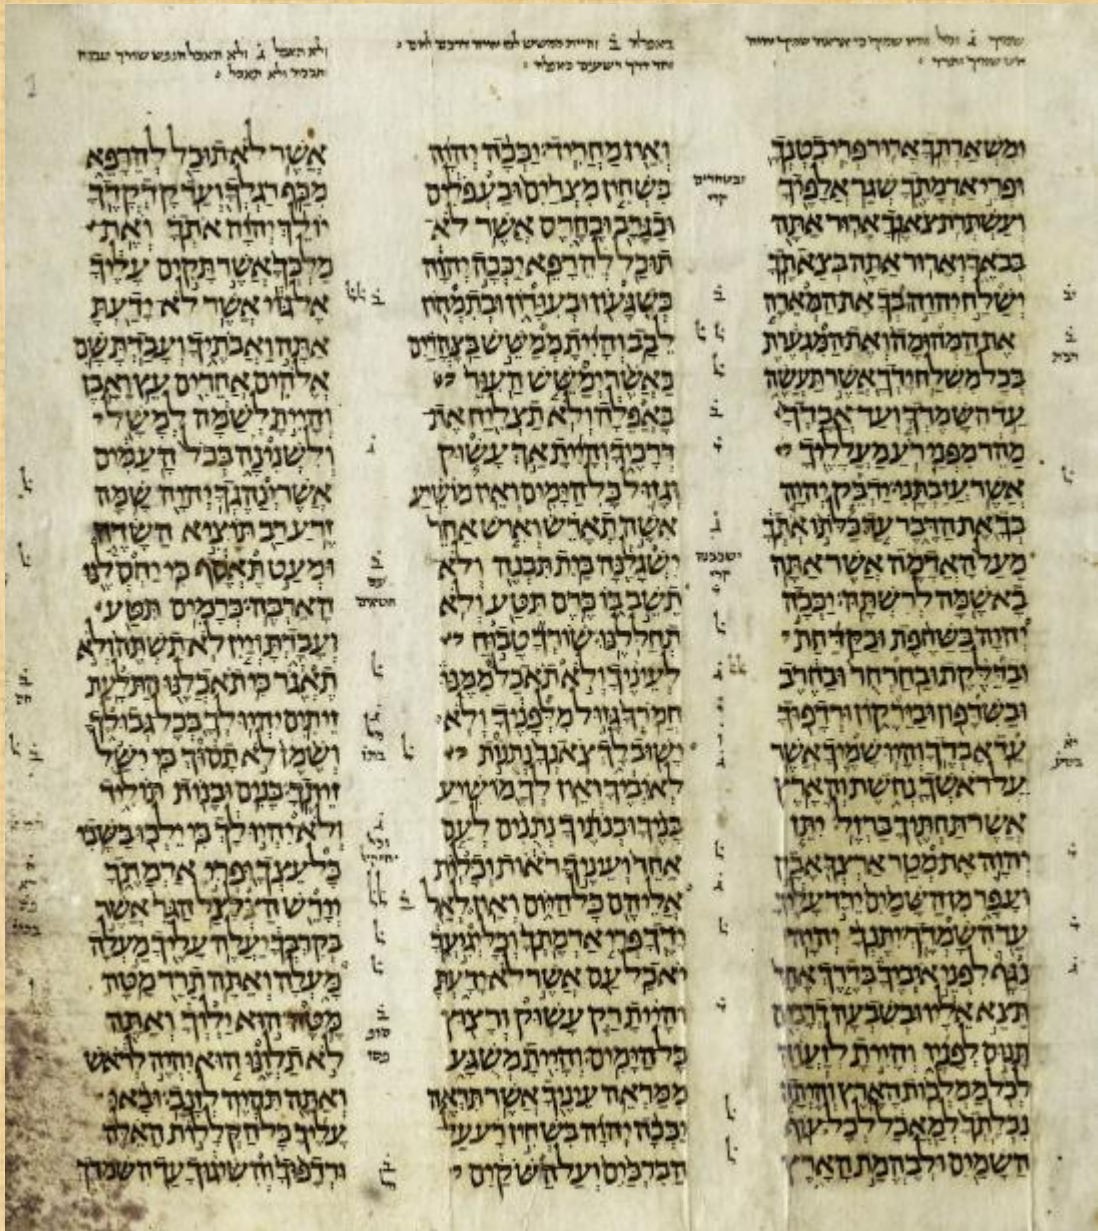 ומשארתך ארור פרי בטנך
ופרי אדמתך שגר אלפיך
ועשתרת צאנך ארור אתה
בבאך וארור אתה בצאתך
ישלח יהוה בך את המארה
את המהומה ואת המגערת
בכל משלח ידך אשר תעשה
עד השמדך ועד אבדך
מהר מפני רע מעלליך
אשר עזבתני ידבק יהוה
בך את הדבר עד כלתו אתך
מעל האדמה אשר אתה
בא שמה לרשתה יככה
יהוה בשחפת ובקדחת
ובדלקת ובחרחר ובחרב
ובשדפון ובירקון ורדפוך
עד אבדך והיו שמיך אשר
על ראשך נחשת והארץ
אשר תחתיך ברזל יתן
יהוה את מטר ארצך אבק
ועפר מן השמים ירד עליך
עד השמדך יתנך יהוה
נגף לפני איביך בדרך אחד
תצא אליו ובשבעה דרכים
תנוס לפניו והיית לזעוה
לכל ממלכות הארץ והיתה
נבלתך למאכל לכל עוף
השמים ולבהמת הארץ
ואין מחריד יככה יהוה
בשחין מצרים ובעפלים
ובגרב ובחרס אשר לא
תוכל להרפא יככה יהוה
בשגעון ובעורון ובתמהון
לבב והיית ממשש בצהרים
כאשר ימשש העור
באפלה ולא תצליח את
דרכיך והיית אך עשוק
וגזול כל הימים ואין מושיע
אשה תארש ואיש אחר
ישגלנה בית תבנה ולא
תשב בו כרם תטע ולא
תחללנו שורך טבוח
לעיניך ולא תאכל ממנו
חמרך גזול מלפניך ולא
ישוב לך צאנך נתנות
לאיביך ואין לך מושיע
בניך ובנתיך נתנים לעם
אחר ועיניך ראות וכלות
אליהם כל היום ואין לאל
ידך פרי אדמתך וכל יגיעך
יאכל עם אשר לא ידעת
והיית רק עשוק ורצוץ
כל הימים והיית משגע
ממראה עיניך אשר תראה
יככה יהוה בשחין רע על
הברכים ועל השקים
אשר לא תוכל להרפא
מכף רגלך ועד קדקדך
יולך יהוה אתך ואת
מלכך אשר תקים עליך
אל גוי אשר לא ידעת
אתה ואבתיך ועבדת שם
אלהים אחרים עץ ואבן
והיית לשמה למשל
ולשנינה בכל העמים
אשר ינהגך יהוה שמה
זרע רב תוציא השדה
ומעט תאסף כי יחסלנו
הארבה כרמים תטע
ועבדת ויין לא תשתה ולא
תאגר כי תאכלנו התלעת
זיתים יהיו לך בכל גבולך
ושמן לא תסוך כי ישל
זיתך בנים ובנות תוליד
ולא יהיו לך כי ילכו בשבי
כל עצך ופרי אדמתך
יירש הצלצל הגר אשר
בקרבך יעלה עליך מעלה
מעלה ואתה תרד מטה
מטה הוא ילוך ואתה
לא תלונו הוא יהיה לראש
ואתה תהיה לזנב ובאו
עליך כל הקללות האלה
ורדפוך והשיגוך עד השמדך